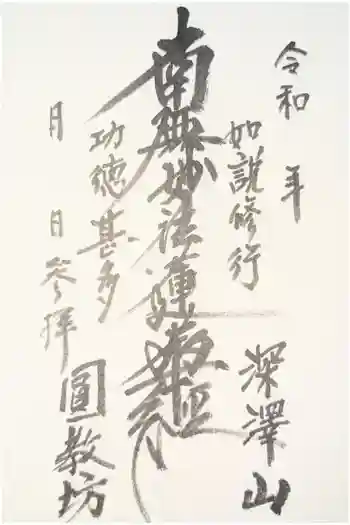 令和 年
如説修行
深澤山
南無妙法蓮華経
功徳甚多
月 日 参拝
圓教坊